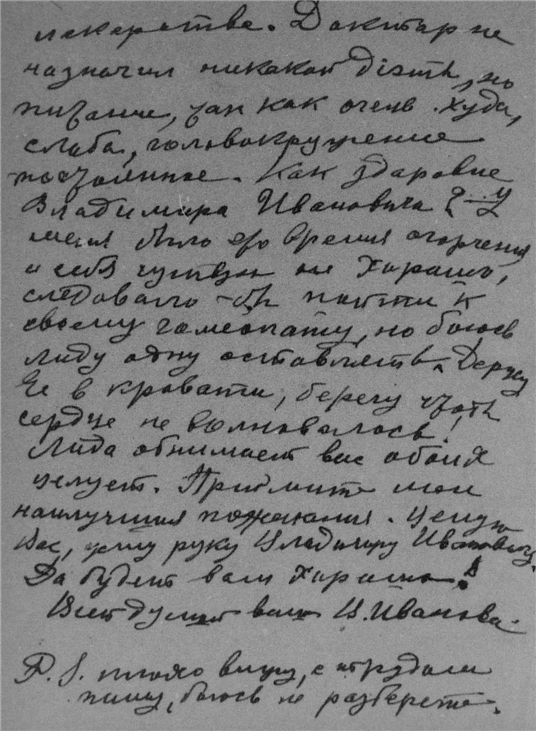 лекарстве. Доктар не
назначил никакой діэты, но
питание, так как очень худа,
слаба, головокружение
постоянное. Как здаровие
Владимира Ивановича? – У
меня было это время огорчения
и себя чувствую не харашо,
следовало – бы пойти к
своему гомеопату, но боюсь
Лиду одну оставлять. Держу
Ее в кровати, берегу чтоб
сердце не волновалось.
Лида обнимает вас обоих
целует. Приймите мои
наилучшия пожелания. Целую
Вас, жму руку Владимиру Ивановичу.
Да будет вам харашо!
Всей душой ваша В. Иванова.
P.S. плохо вижу, с трудом
пишу, боюсь не разберете.